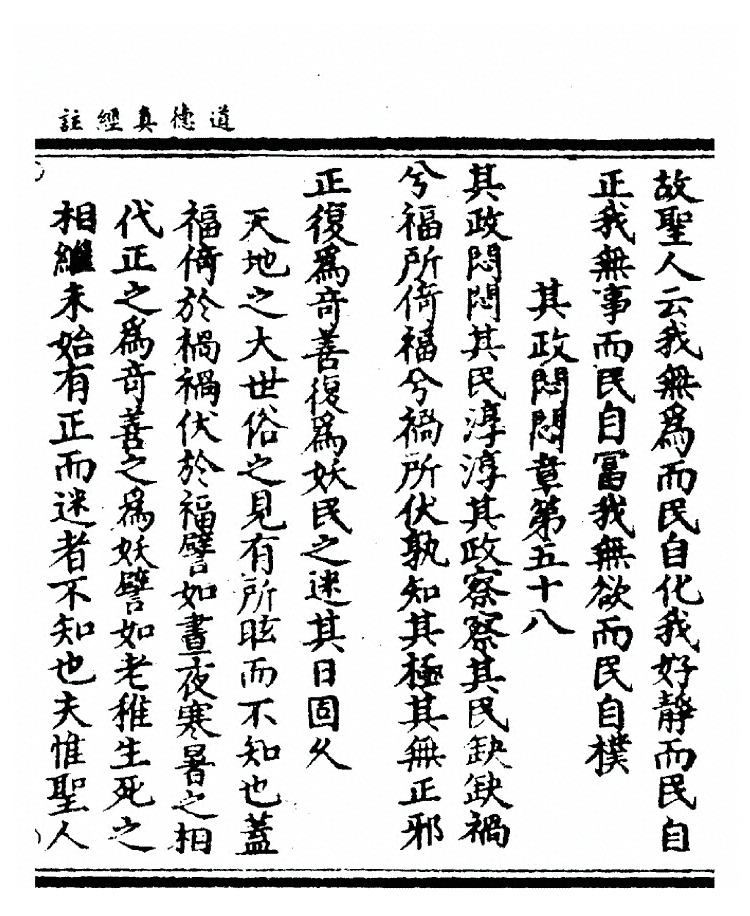 道德真經註
故聖人云我無爲而民自化我好靜而民自
正我無事而民自富我無欲而民自樸
其政悶悶章第五十八
其政悶悶其民淳淳其政察察其民缺缺禍
兮福所倚福兮禍所伏孰知其極其無正邪
正復爲奇善復爲妖民之迷其日固久
天地之大世俗之見有所眩而不知也蓋
福倚於禍禍伏於福譬如晝夜寒暑之相
代正之爲奇善之爲妖譬如老稚生死之
相繼未始有正而迷者不知也夫惟聖人